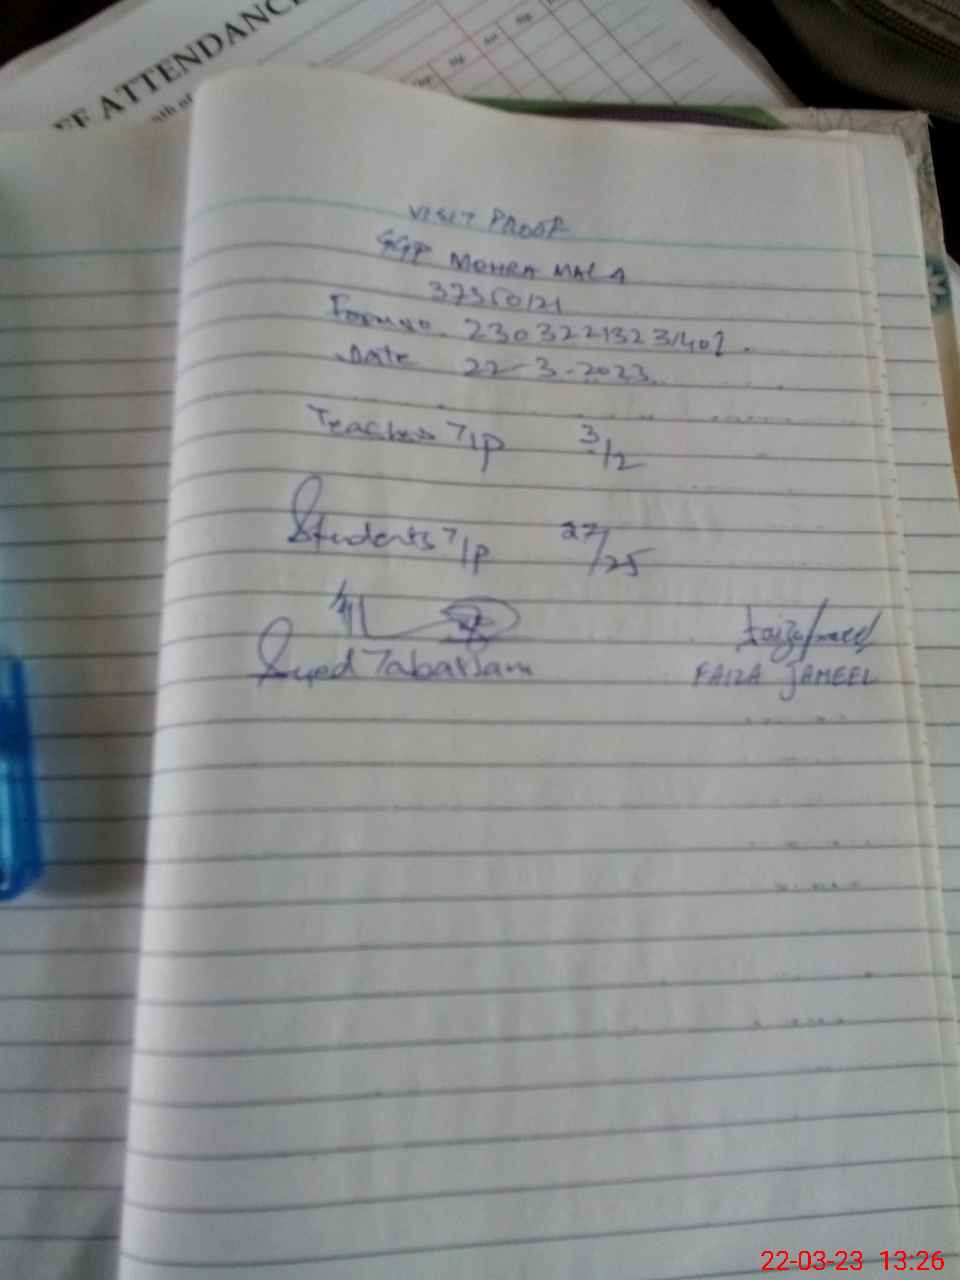 FF ATTENDANCE
VISIT PROOF
GGP MOHRA MALA
37350121
Form no. 2303221323140?
Date 22-3-2023
Teachers T/P 3/2
Students T/P 27/25
Syed Tabassam
FAIZA JAMEEL
22-03-23 13:26